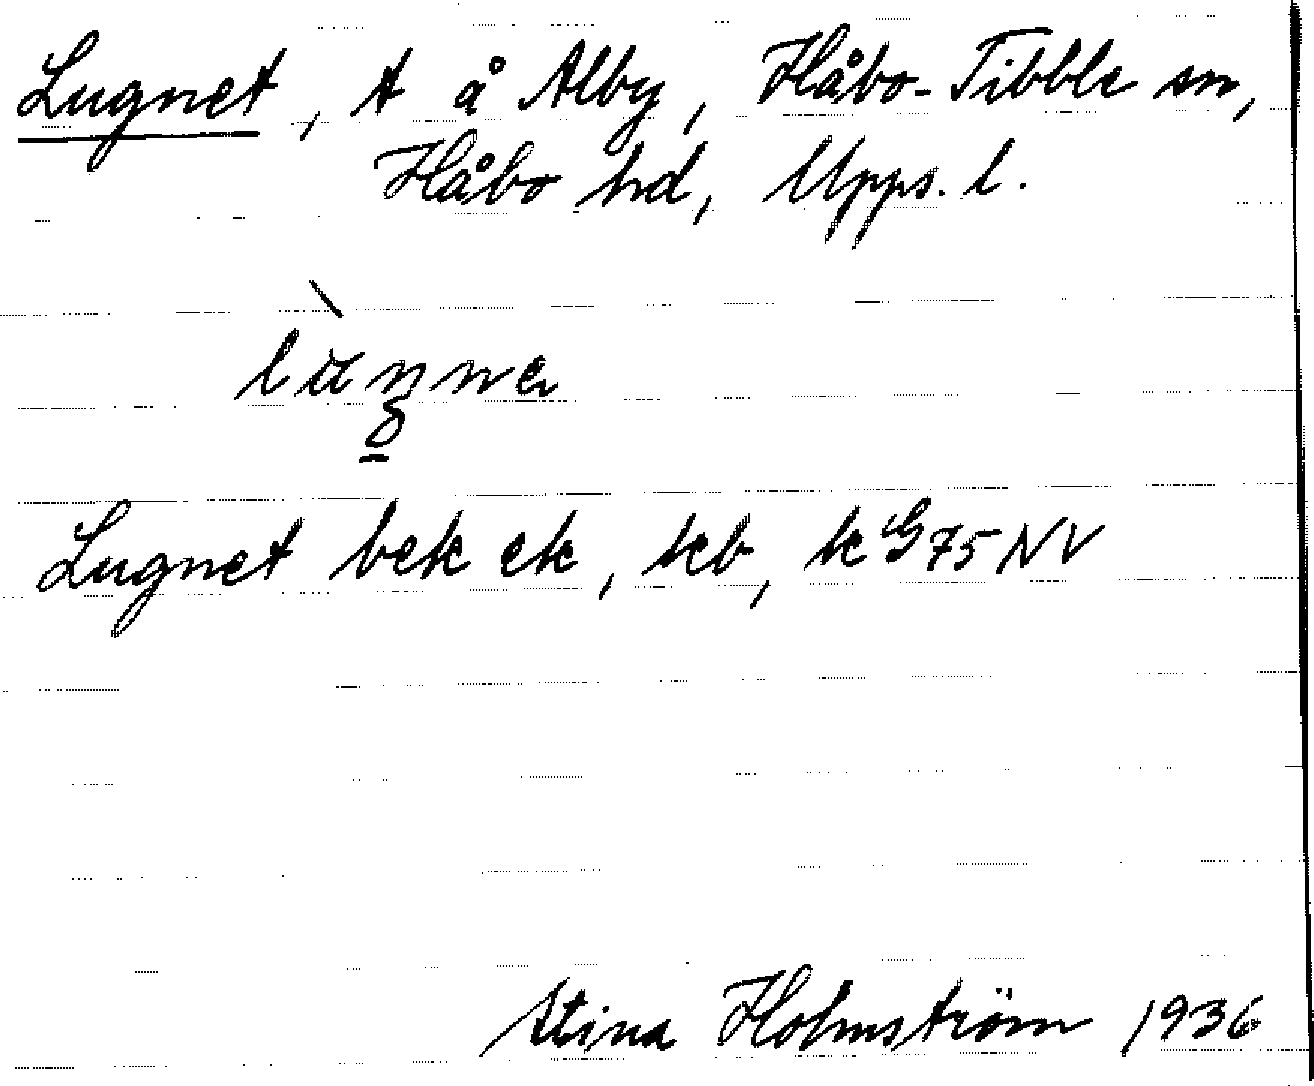 Lugnet, t å Alby, Håbo-Tibble sn,
Håbo hd, Upps. l.
Lugnet bek ek, jeb, k G 75 NV
Stina Holmström 1936